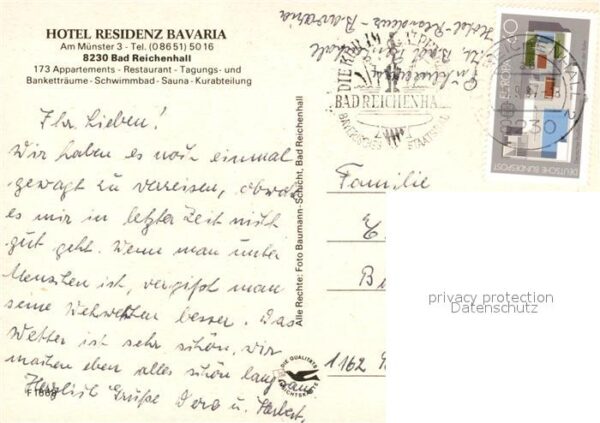 HOTEL RESIDENZ BAVARIA
Am Münster 3 - Tel. (0 86 51) 50 16
8230 Bad Reichenhall
173 Appartements - Restaurant - Tagungs- und
Banketträume - Schwimmbad - Sauna - Kurabteilung
Ihr Lieben!
Wir haben es noch einmal
gewagt zu verreisen, obwohl
es mir in letzter Zeit nicht
gut geht. Wenn man unter
Menschen ist, vergißt man
seine Wehwehchen besser. Das
Wetter ist sehr schön, wir
machen eben alles schön langsam
Herzlich Grüße Dora u. Herbert,
F 1868
Alle Rechte: Foto Baumann-Schicht, Bad Reichenhall
DIE QUALITÄTS
Hotel-Residenz-Bavaria
BAD REICHENHALL
BAYERISCHES STAATSBAD
DEUTSCHE BUNDESPOST
EUROPA
8230
Familie
1162
privacy protection
Datenschutz